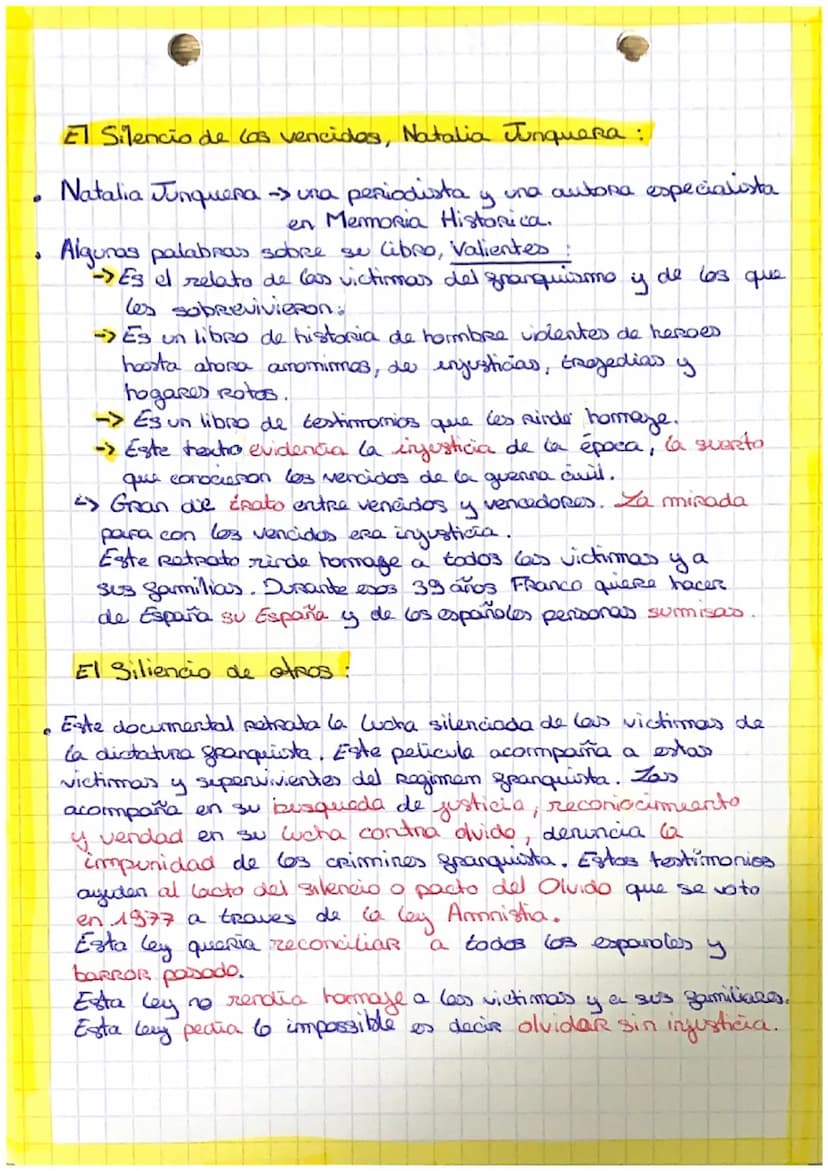 El Silencio de los vencidos, Natalia Junquera :
• Natalia Junquera -> una periodista y una autora especialista
en Memoria Historica.
• Algunas palabras sobre su libro, Valientes :
-> Es el relato de las victimas del franquismo y de los que
les sobrevivieron.
-> Es un libro de historia de hombre violentes de heroes
hasta ahora anonimas, de injusticias, tragedias y
hogares rotos.
-> Es un libro de testimonios que les rinde homage.
-> Este texto evidencia la injusticia de la época, la suerto
que conocieron los vencidos de la guerra civil.
↳ Gran die trato entre vencidos y vencedores. La mirada
para con los vencidos era injusticia.
Este Retrato rinde homage a todos las victimas y a
sus familias. Durante esos 39 años Franco quiere hacer
de España su España y de los españoles personas sumisas.
El Siliencio de otros :
• Este documental retrata la lucha silenciada de las victimas de
la dictatura franquista. Este pelicula acompaña a estas
victimas y supervivientes del Regimem franquista. Las
acompaña en su busqueda de justicia, reconiocimiento
y verdad en su lucha contra olvido, denuncia la
impunidad de los crimines franquista. Estos testimonios
ayuden al Pacto del silencio o pacto del Olvido que se voto
en 1977 a traves de la ley Amnistia.
Esta ley queria reconciliar a todos los espanoles y
barror pasado.
Esta ley no rendia homage a las victimas y a sus familiares.
Esta ley pedia lo impossible es decir olvidar sin injusticia.